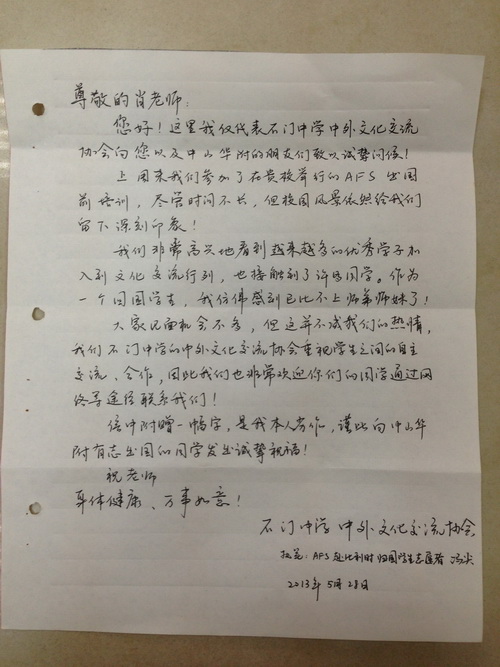 尊敬的肖老师：
您好！这里我仅代表石门中学中外文化交流
协会向您以及中山华附的朋友们致以诚挚问候！
上周末我们参加了在贵校举行的AFS出国
前培训，尽管时间不长，但校园风景依然给我们
留下深刻印象！
我们非常高兴地看到越来越多的优秀学子加
入到文化交流行列，也接触到了许多同学。作为
一个回国学生，我仿佛感到已比不上师弟师妹了！
大家见面机会不多，但这并不减我们的热情，
我们石门中学的中外文化交流协会重视学生之间的自主
交流、合作，因此我们也非常欢迎你们的同学通过网
络等途径联系我们！
信中附赠一幅字，是我本人劣作，谨此向中山华
附有志出国的同学发出诚挚祝福！
祝老师
身体健康、万事如意！
石门中学 中外文化交流协会
执笔：AFS赴比利时归国学生志愿者
2013年5月28日